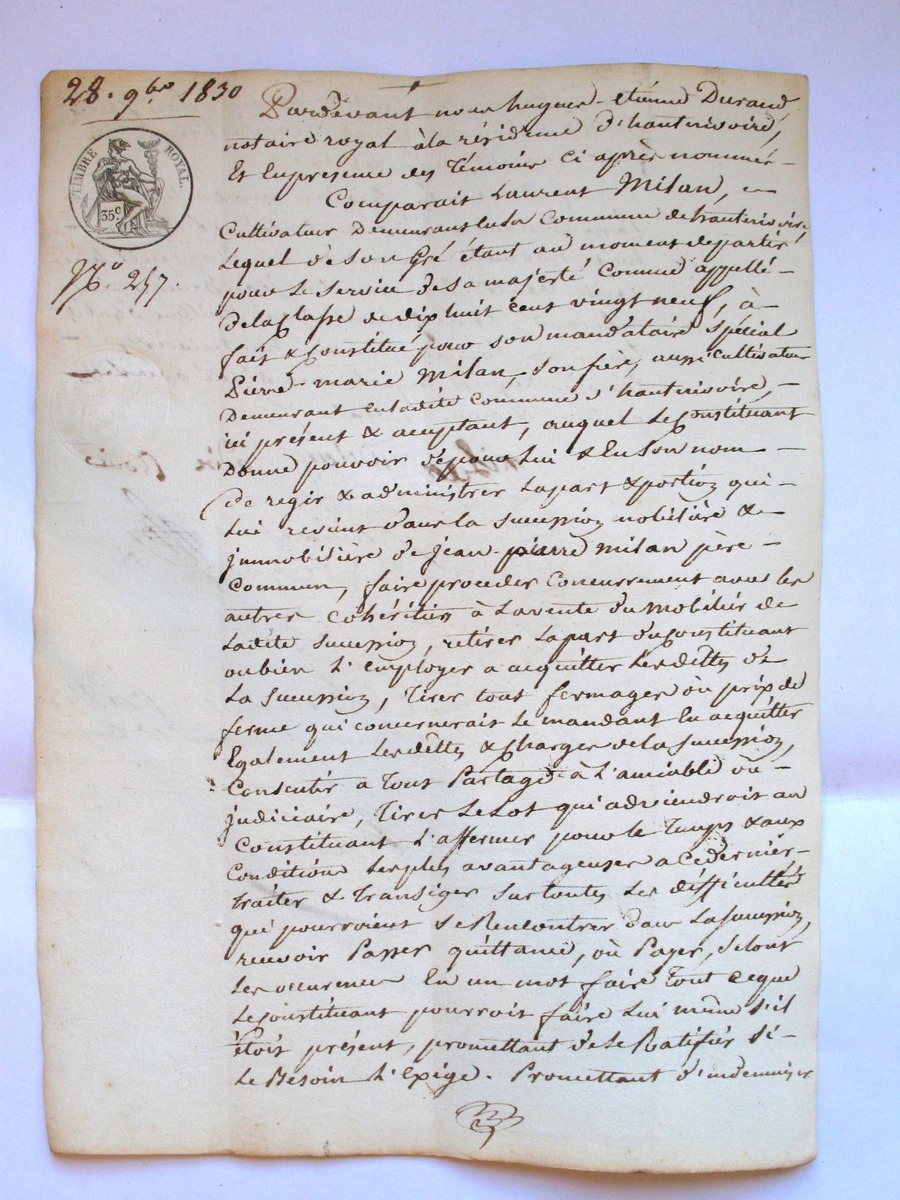 28. 9bre 1830
TIMBRE ROYAL.
35c.
No. 257.
Pardevant nous hugues-étienne Durand
notaire royal à la résidence d'hauterivoire,
Et En présence des Témoins Ci après nommés
Comparait Laurent Milan,
Cultivateur Demeurant En la Commune de hauterivoire
Lequel de son Gré étant au moment de partir
pour Le service de sa majesté Comme appellé
de la Classe de dix huit cent vingt neuf, à
fait & Constitué pour son mandataire spécial
Pierre-marie Milan, son frère, aussi Cultivateur
Demeurant En ladite Commune d'hauterivoire,
ici présent & acceptant, auquel Le Constituant
Donne pouvoir de pour Lui & En son nom
de regir & administrer La part & portion qui
Lui revient dans La succession mobilière &
immobilière de jean-pierre Milan père
Commun, faire proceder Concurremment avec les
autres Cohéritiers à La vente du Mobilier de
Ladite succession, retirer La part du Constituant
ou bien L'employer a acquitter Les dettes de
La succession, Tirer tout fermages ou prix de
ferme qui concernerait Le mandant En acquitter
Egalement Les dettes & Charges de la succession,
Consentir a Tout Partage à L'amiable ou
judiciaire, Tirer Le Lot qui adviendroit au
Constituant L'affermer pour le Temps & aux
Conditions Les plus avantageuses a Ce dernier
Traiter & Transiger sur toutes Les difficultés
qui pourroient se Rencontrer dans La succession,
recevoir Passer quittance, ou Payer, selont
Les occurences En un mot faire Tout ce que
Le Constituant pourroit faire Lui même s'il
étoit présent, promettant de Le Ratifier si
Le Besoin L'Exige. Promettant d'indemniser